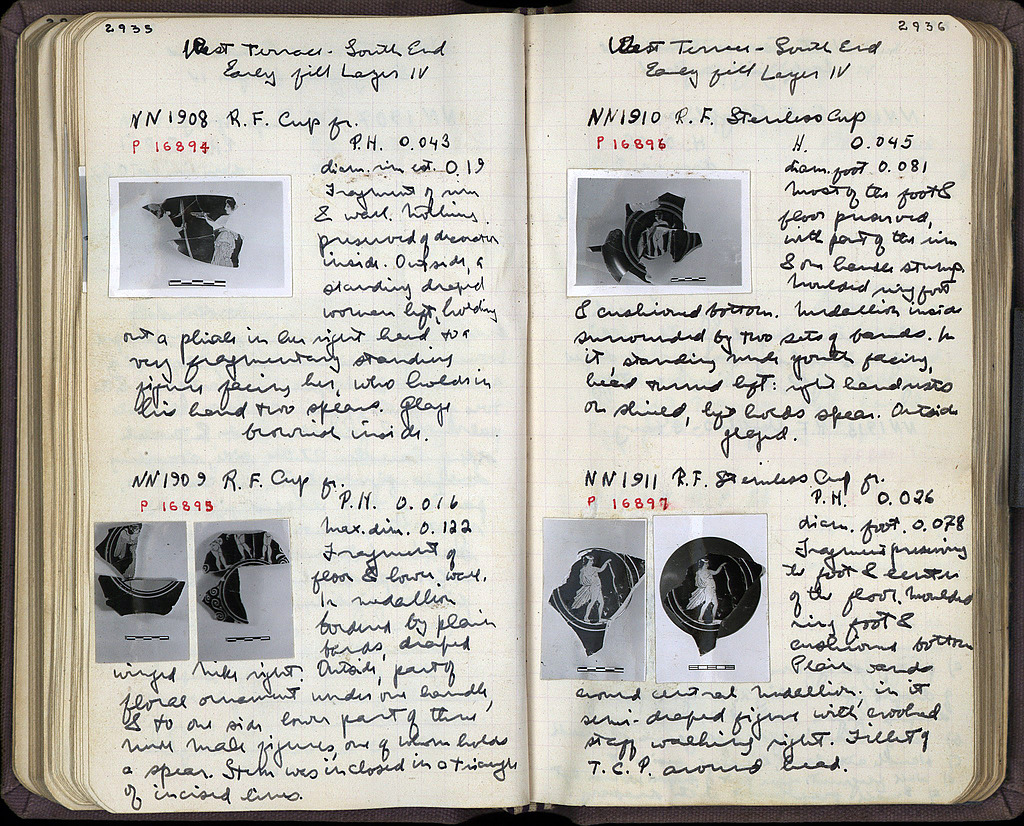 2935
West Terrace - South End
Early fill Layer IV
NN1908 R.F. Cup fr.
P 16894 P.H. 0.043
diam. rim est. 0.19
Fragment of rim
& wall. Nothing
preserved of decoration
inside. Outside, a
standing draped
woman left, holding
out a phiale in her right hand to a
very fragmentary standing
figure facing her, who holds in
his hand two spears. Glaze
brownish inside.
NN1909 R.F. Cup fr.
P 16895 P.H. 0.016
max. dim. 0.122
Fragment of
floor & lower wall.
In medallion
bordered by plain
bands, draped
winged Nike right. Outside, part of
floral ornament under one handle,
& to one side lower part of three
nude male figures, one of whom holds
a spear. Stem was inclosed in a triangle
of incised lines.
2936
West Terrace - South End
Early fill Layer IV
NN1910 R.F. Stemless Cup
P 16896 H. 0.045
diam. foot 0.081
Most of the foot &
floor preserved,
with part of the rim
& one handle stump.
Moulded ring foot
& cushioned bottom. Medallion inside
surrounded by two sets of bands. In
it, standing nude youth facing,
head turned left: right hand rests
on shield, left holds spear. Outside
glazed.
NN1911 R.F. Stemless Cup fr.
P 16897 P.H. 0.026
diam. foot. 0.078
Fragment preserving
the foot & center
of the floor. Moulded
ring foot &
cushioned bottom
Plain bands
around central medallion; in it
semi-draped figure with crooked
staff walking right. Fillet of
T.C.P. around head.